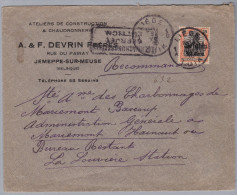 ATELIERS DE CONSTRUCTION
& CHAUDRONNERIE
A. & F. DEVRIN FRÈRES
RUE DU PARAY
JEMEPPE-SUR-MEUSE
(BELGIQUE)
TÉLÉPHONE 69 SERAING
LIÈGE
LIÈGE
Sté Ame des Charbonnages de
Mariemont Bascoup
Administration Générale de
Mariemont Hainaut
Bureau Restant
La Louvière Station